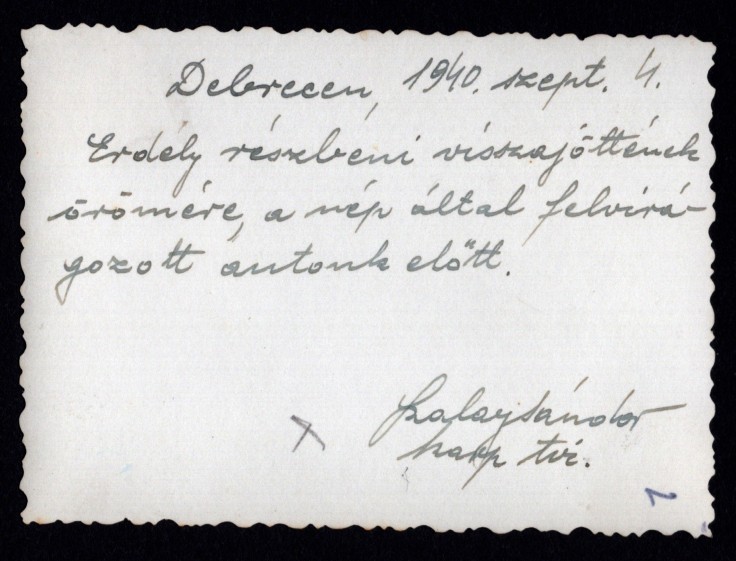 Debrecen, 1940. szept. 4.
Erdély részbeni visszajöttének
örömére, a nép által felvirá-
gozott autonk előtt.
Szalay Sándor
karp tvi.